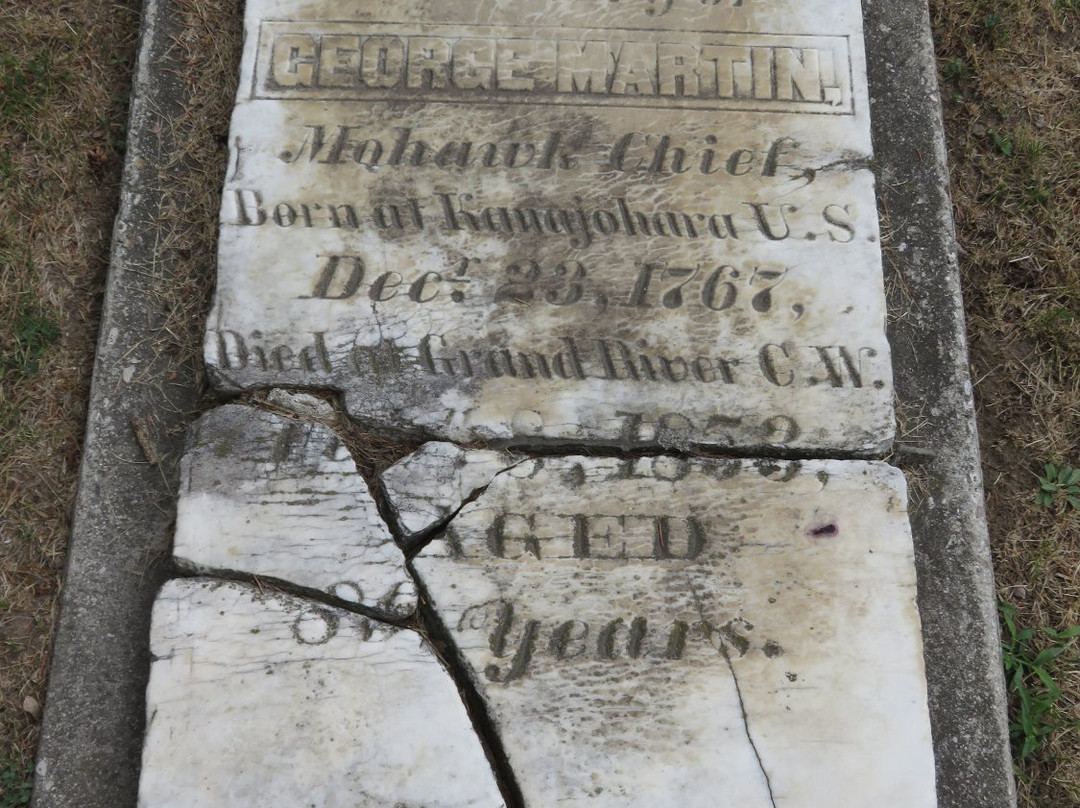 GEORGE MARTIN,
Mohawk Chief,
Born at Kanajohara U.S.
Decr. 23, 1767,
Died at Grand River C.W.
8, 1853,
AGED
Years.